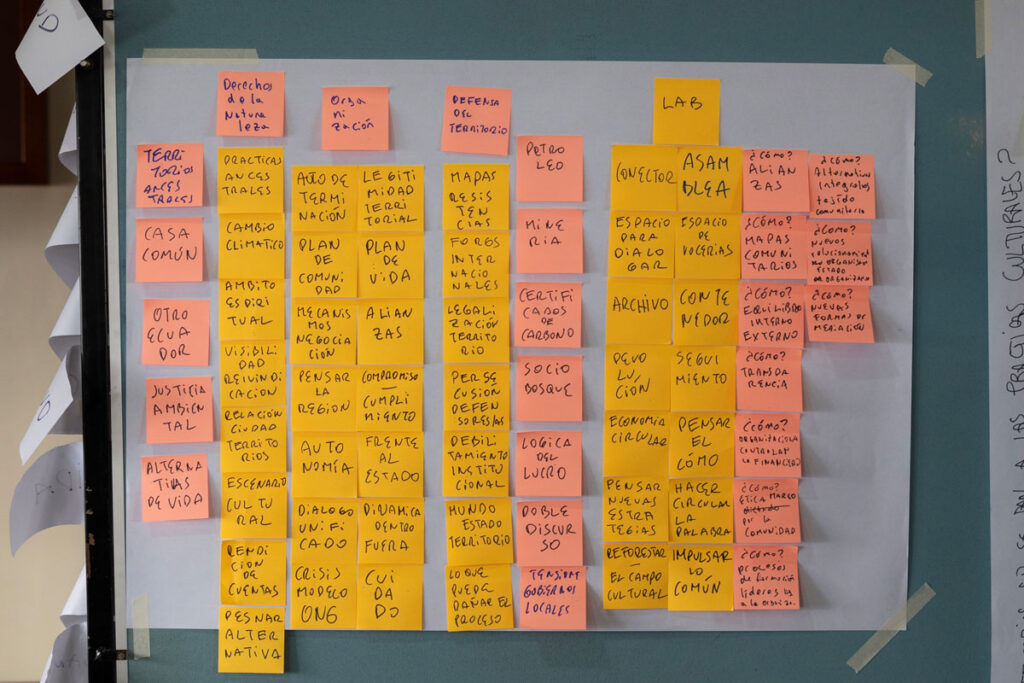 Derechos
de la
Natura
leza
TERRI
TORIOS
ANCES
TRALES
CASA
COMÚN
OTRO
ECUA
DOR
JUSTICIA
AMBIEN
TAL
ALTERNA
TIVAS
DE VIDA
PRACTICAS
ANCES
TRALES
CAMBIO
CLIMATICO
AMBITO
ESPIRI
TUAL
VISIBILI
DAD
REIVINDI
CACION
RELACIÓN
CIUDAD
TERRITO
RIOS
ESCENARIO
CULTU
RAL
RENDI
CION
DE
CUENTAS
PESNAR
ALTER
NATIVA
Orga
ni
zación
AUTO DE
TERMI
NACIÓN
PLAN
DE
COMUNI
DAD
MECANIS
MOS
NEGOCIA
CIÓN
PENSAR
LA
REGION
AUTO
NOMÍA
DIALOGO
UNIFI
CADO
CRISIS
MODELO
ONG
LEGITI
MIDAD
TERRI
TORIAL
PLAN
DE
VIDA
ALIAN
ZAS
COMPROMISO
CUMPLI
MIENTO
FRENTE
AL
ESTADO
DINAMICA
DENTRO
FUERA
CUI
DA
DO
DEFENSA
DEL
TERRITORIO
MAPAS
RESIS
TEN
CIAS
FOROS
INTER
NACIO
NALES
LEGALI
ZACIÓN
TERRITO
RIO
PERSE
CUSIÓN
DEFEN
SORES/AS
DEBILI
TAMIENTO
INSTITU
CIONAL
MUNDO
ESTADO
TERRITORIO
LO QUE
PUEDA
DAÑAR EL
PROCESO
PETRO
LEO
MINE
RIA
CERTIFI
CADOS
DE
CARBONO
SOCIO
BOSQUE
LOGICA
DEL
LUCRO
DOBLE
DISCUR
SO
TENSION
GOBIERNOS
LOCALES
LAB
CONECTOR
ESPACIO
PARA
DIALO
GAR
ARCHIVO
REVO
LU
CIÓN
ECONOMIA
CIRCULAR
PENSAR
NUEVAS
ESTRA
TEGIAS
REFORESTAR
EL CAMPO
CULTURAL
ASAM
BLEA
ESPACIO
DE
VOCERIAS
CONTE
NEDOR
SEGUI
MIENTO
PENSAR
EL
CÓMO
HACER
CIRCULAR
LA
PALABRA
IMPULSAR
LO
COMÚN
¿CÓMO?
ALIAN
ZAS
¿CÓMO?
MAPAS
COMUNI
TARIOS
¿CÓMO?
EQUILIBRIO
INTERNO
EXTERNO
¿CÓMO?
TRANSPA
RENCIA
¿CÓMO?
CONTROLAR
LA FINANCIEDAD
¿CÓMO?
ETICA MARCO
POR LA
COMUNIDAD
¿CÓMO?
PROCESOS
de formación
líderes
¿CÓMO?
Alternativas
tejido
comunitario
¿CÓMO?
NUEVOS
ESTADO
¿CÓMO?
NUEVAS
FORMAS DE
MEDIACIÓN
A LAS PRACTICAS CULTURALES?